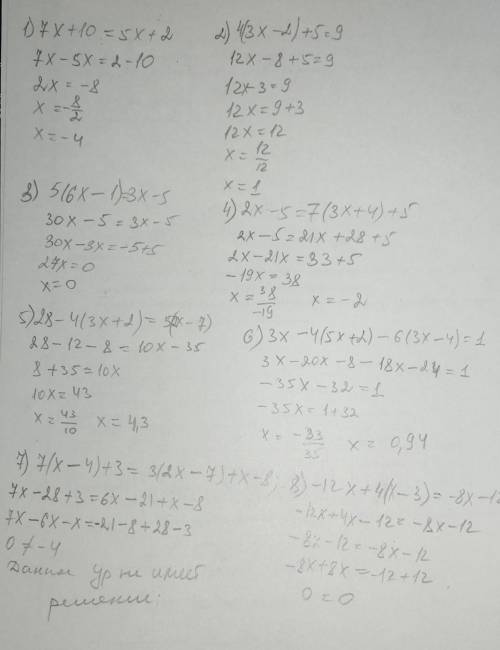 1) 7x + 10 = 5x + 2
7x - 5x = 2 - 10
2x = -8
x = -8/2
x = -4
2) 4(3x - 2) + 5 = 9
12x - 8 + 5 = 9
12x - 3 = 9
12x = 9 + 3
12x = 12
x = 12/12
x = 1
3) 5(6x - 1) = 3x - 5
30x - 5 = 3x - 5
30x - 3x = -5 + 5
27x = 0
x = 0
4) 2x - 5 = 7(3x + 4) + 5
2x - 5 = 21x + 28 + 5
2x - 21x = 33 + 5
-19x = 38
x = 38/-19 x = -2
5) 28 - 4(3x + 2) = 5(2x - 7)
28 - 12 - 8 = 10x - 35
8 + 35 = 10x
10x = 43
x = 43/10 x = 4,3
6) 3x - 4(5x + 2) - 6(3x - 4) = 1
3x - 20x - 8 - 18x - 24 = 1
-35x - 32 = 1
-35x = 1 + 32
x = -33/35 x = 0,94
7) 7(x - 4) + 3 = 3(2x - 7) + x - 8;
7x - 28 + 3 = 6x - 21 + x - 8
7x - 6x - x = -21 - 8 + 28 - 3
0 ≠ -4
ур не имеет
8) -12x + 4(x - 3) = -8x - 12
-12x + 4x - 12 = -8x - 12
-8x - 12 = -8x - 12
-8x + 8x = -12 + 12
0 = 0